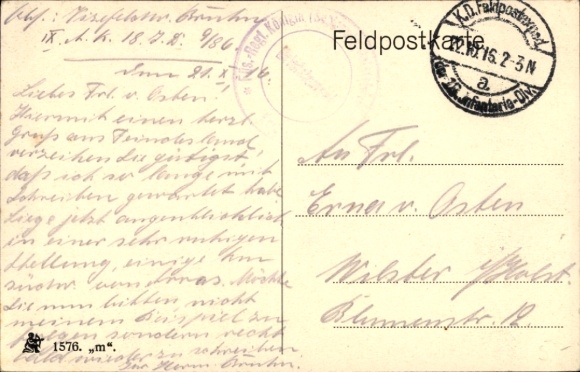 Abs: Vizefeldw.
IX. A. K. 18. J. D. 9/86
Den 21. X. 16.
Feldpostkarte
K.D. Feldpostexped.
22.10.16. 2-3 N
a
der 18. Infanterie-Div.
Liebes Frl. v. Osten!
Hiermit einen herzl.
Gruß aus Feindesland,
verzeihen Sie gütigst,
daß ich so lange mit
schreiben gewartet habe.
Liege jetzt augenblicklich
in einer sehr ruhigen
Stellung, einige km
südw. von Arras. Möchte
Sie nun bitten nicht
meinem Beispiel zu
folgen sondern recht
bald wieder zu schreiben.
Ihr Herm.
An Frl.
Erna v. Osten
Wilster i/Holst.
Blumenstr. 12
1576. „m".